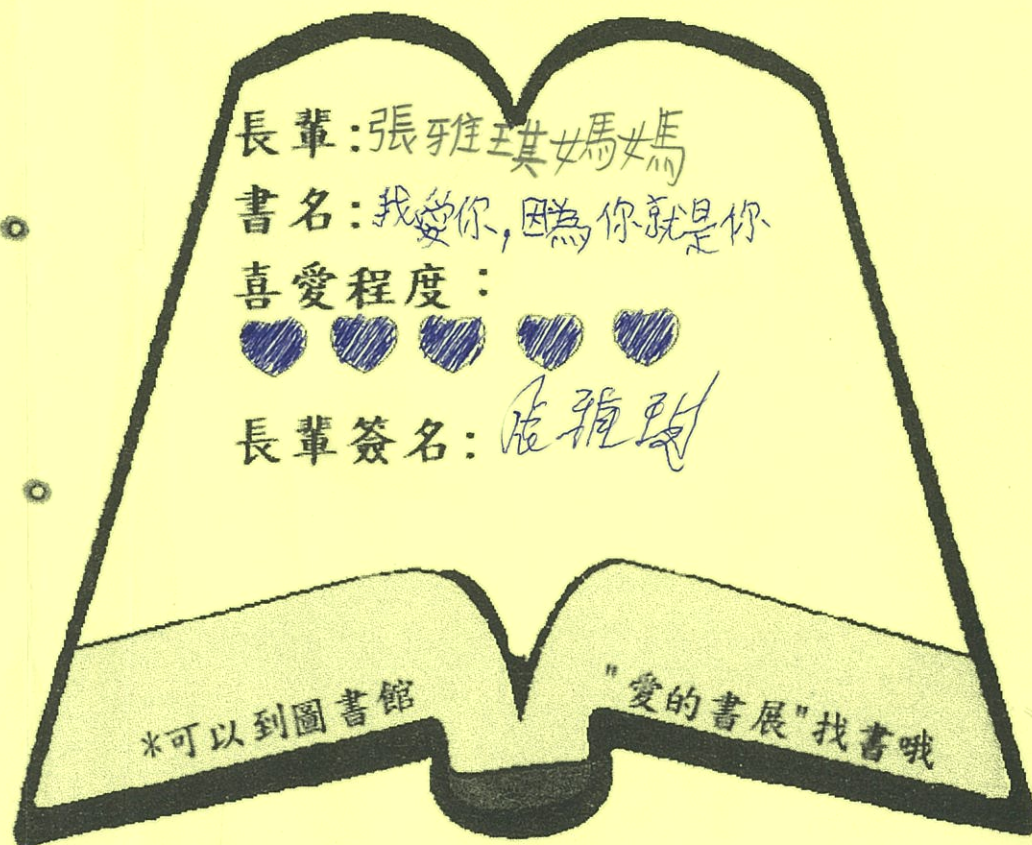 長輩:張雅琪媽媽
書名:我愛你,因為你就是你
喜愛程度:
長輩簽名:張雅琪
*可以到圖書館
"愛的書展"找書哦